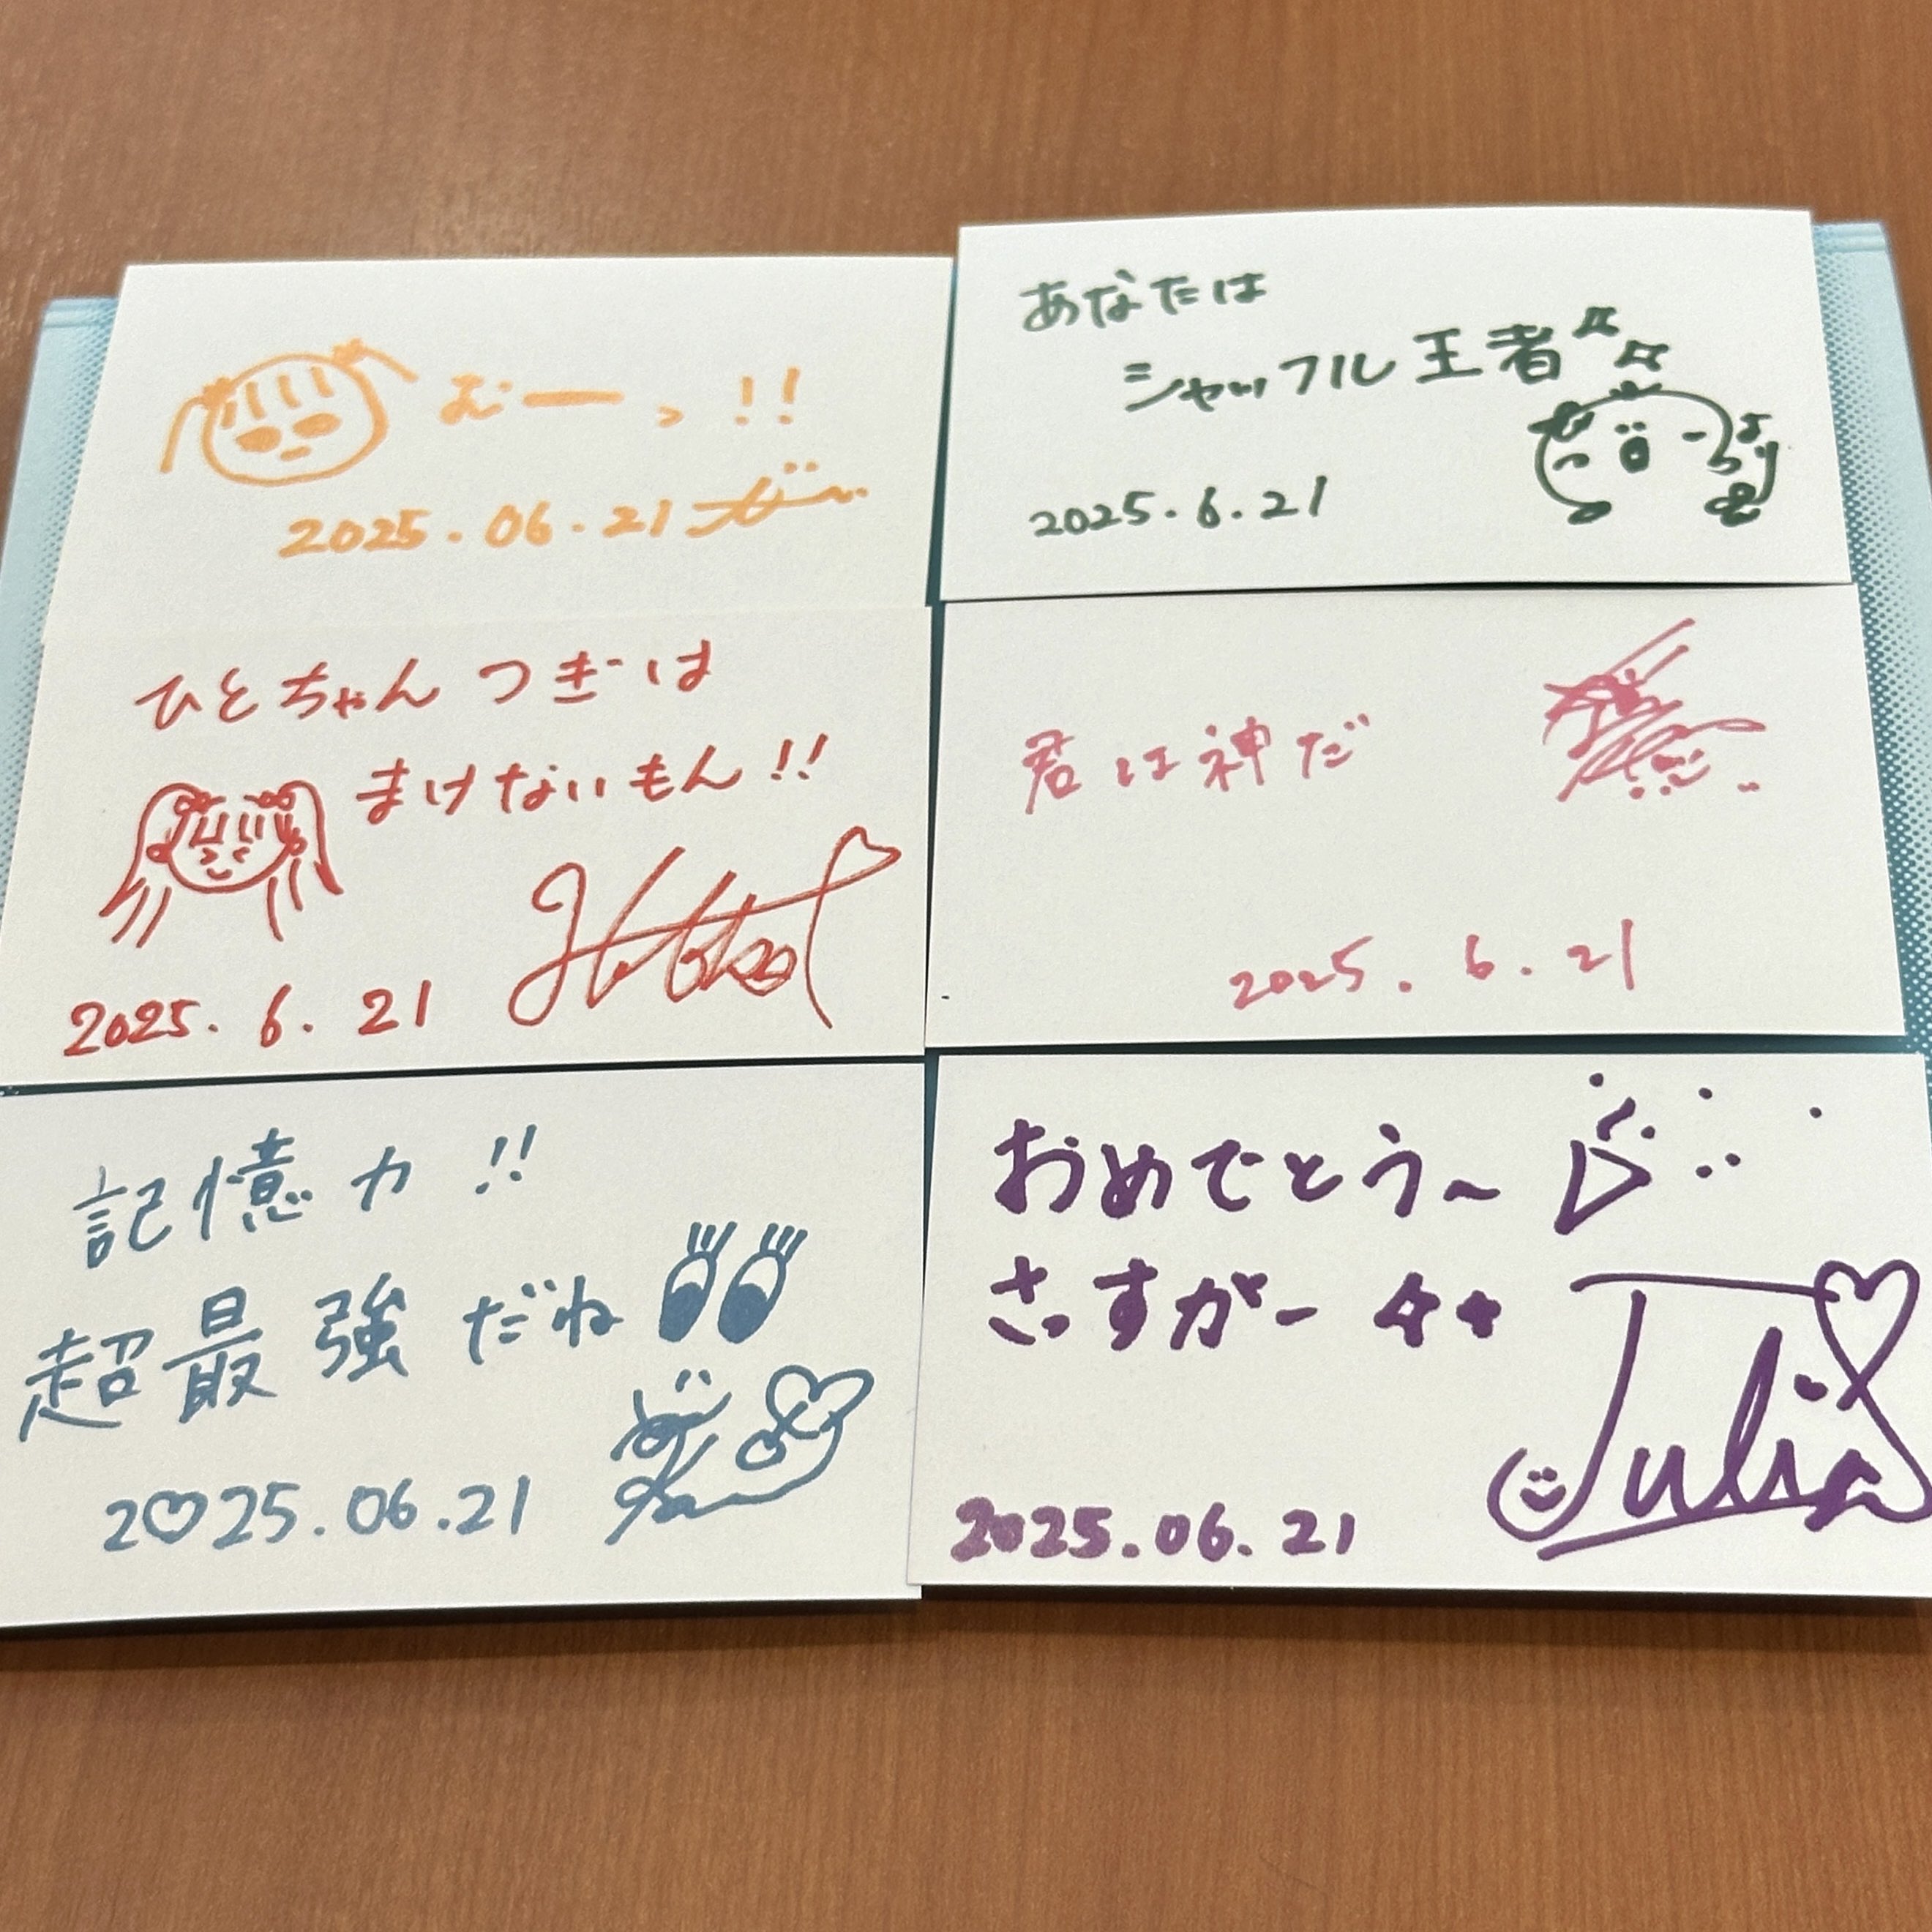 むーっ!!
2025.06.21
あなたは
シャッフル王者
2025.6.21
ひとちゃん つぎは
まけないもん!!
2025.6.21
君は神だ
2025.6.21
記憶力!!
超最強だね
2025.06.21
おめでとう〜
さっすがー
Julia
2025.06.21